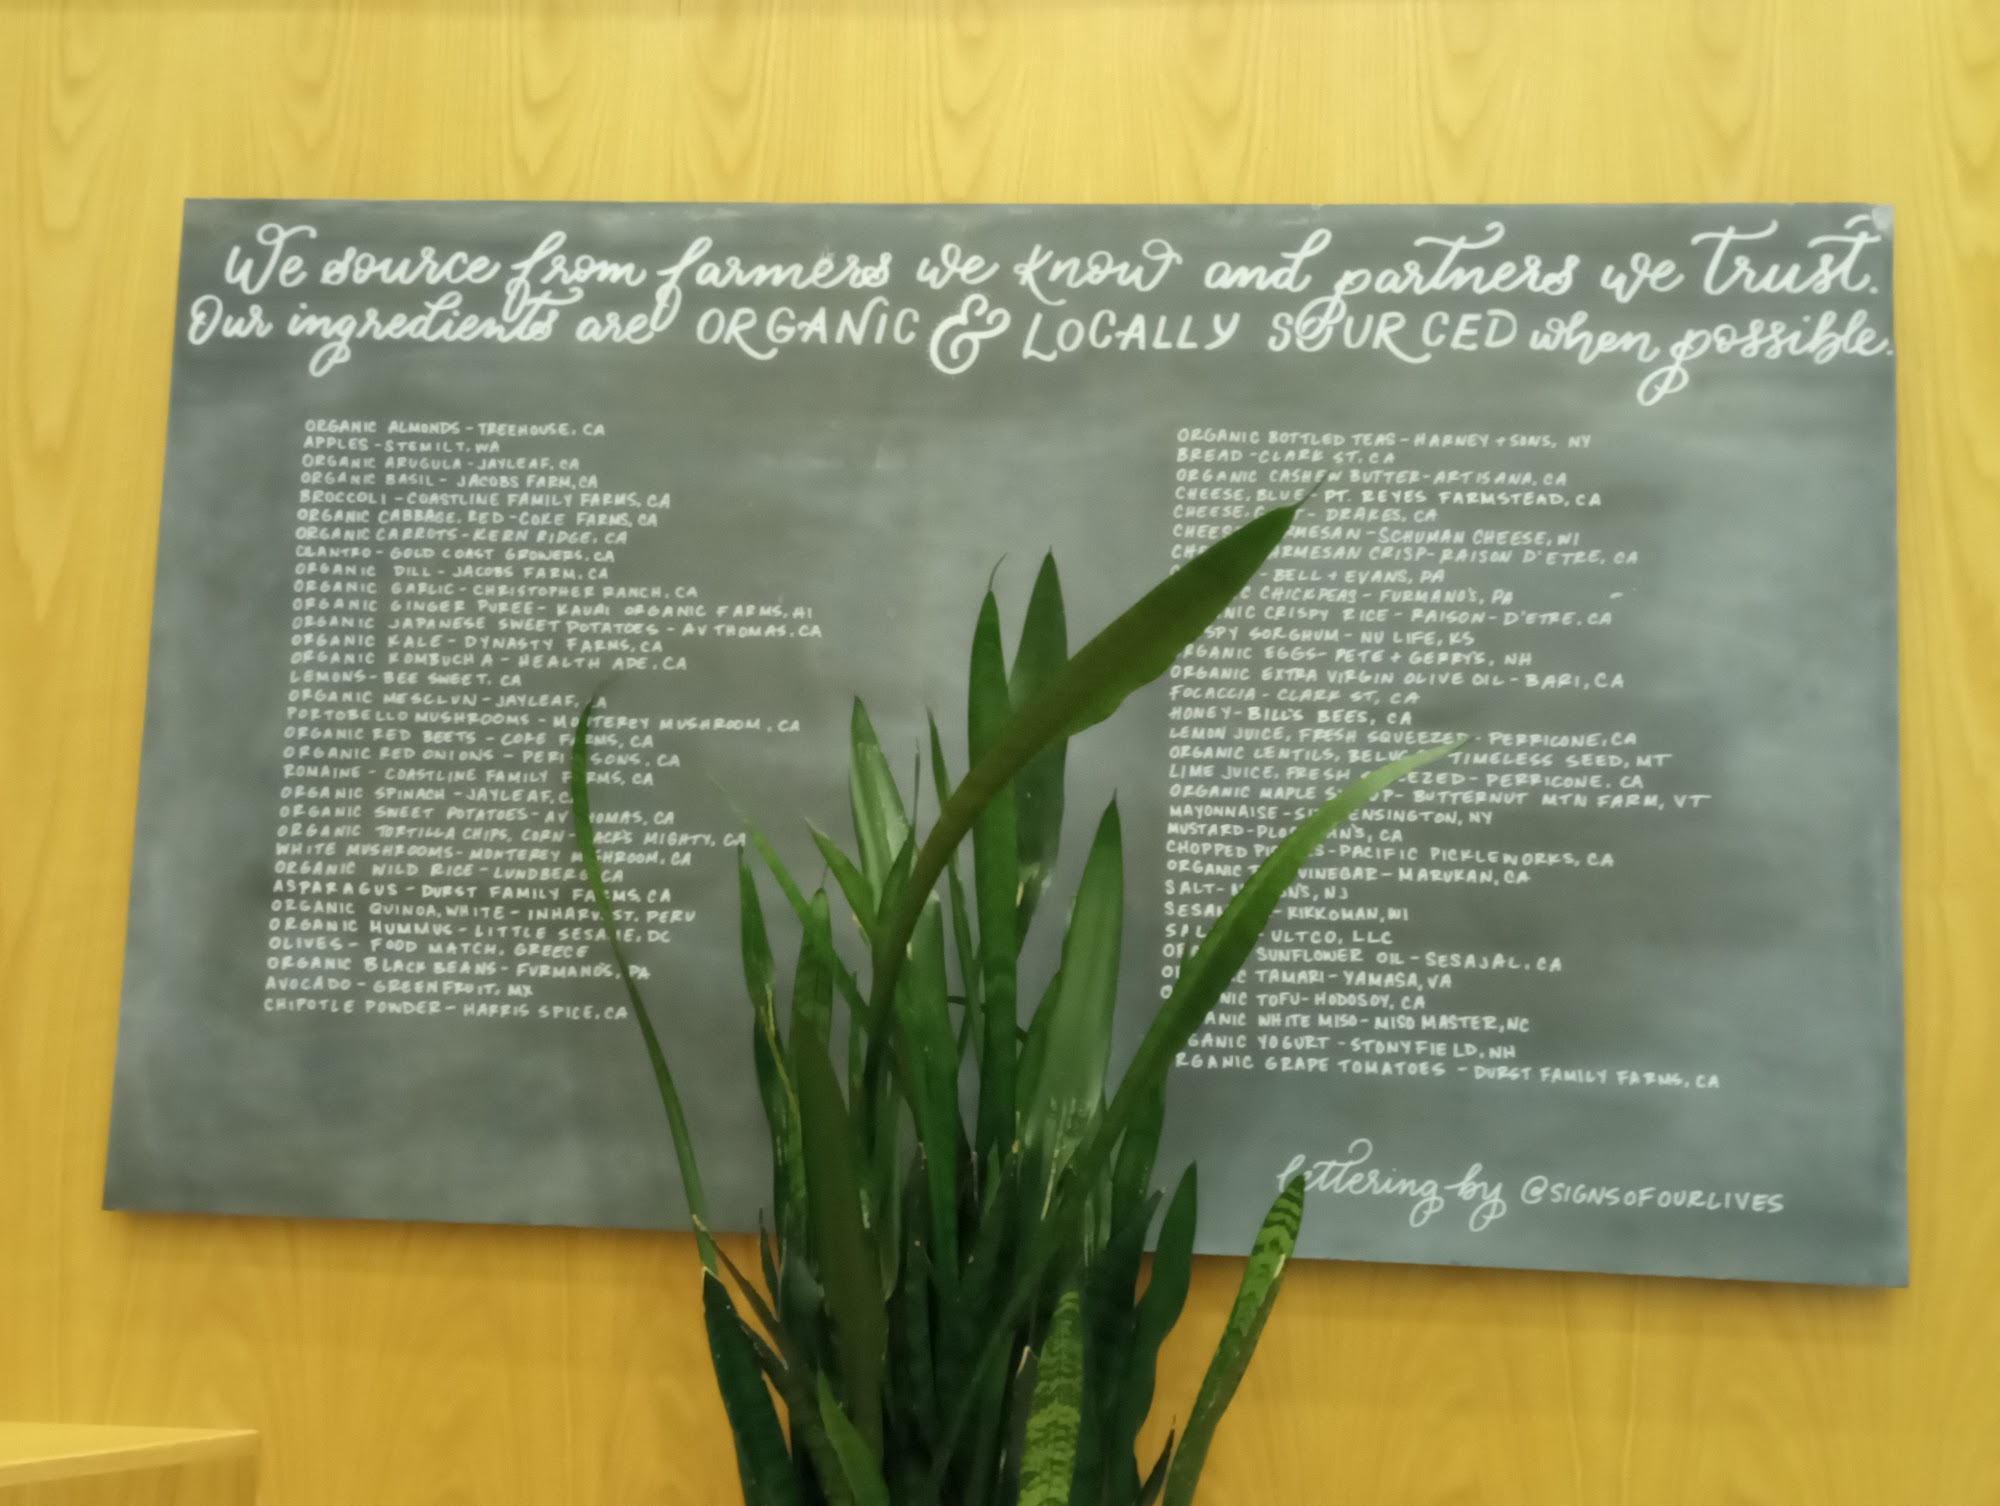 We source from farmers we know and partners we trust.
Our ingredients are ORGANIC & LOCALLY SOURCED when possible.
ORGANIC ALMONDS - TREEHOUSE, CA
APPLES - STEMILT, WA
ORGANIC ARUGULA - JAYLEAF, CA
ORGANIC BASIL - JACOBS FARM, CA
BROCCOLI - COASTLINE FAMILY FARMS, CA
ORGANIC CABBAGE, RED - COKE FARMS, CA
ORGANIC CARROTS - KERN RIDGE, CA
CILANTRO - GOLD COAST GROWERS, CA
ORGANIC DILL - JACOBS FARM, CA
ORGANIC GARLIC - CHRISTOPHER RANCH, CA
ORGANIC GINGER PUREE - KAUAI ORGANIC FARMS, HI
ORGANIC JAPANESE SWEET POTATOES - AV THOMAS, CA
ORGANIC KALE - DYNASTY FARMS, CA
ORGANIC KOMBUCHA - HEALTH ADE, CA
LEMONS - BEE SWEET, CA
ORGANIC MESCLUN - JAYLEAF, CA
PORTOBELLO MUSHROOMS - MONTEREY MUSHROOM, CA
ORGANIC RED BEETS - COKE FARMS, CA
ORGANIC RED ONIONS - PERI SONS, CA
ROMAINE - COASTLINE FAMILY FARMS, CA
ORGANIC SPINACH - JAYLEAF, C
ORGANIC SWEET POTATOES - AV THOMAS, CA
ORGANIC TORTILLA CHIPS, CORN - JACK'S MIGHTY, CA
WHITE MUSHROOMS - MONTEREY MUSHROOM, CA
ORGANIC WILD RICE - LUNDBERG, CA
ASPARAGUS - DURST FAMILY FARMS, CA
ORGANIC QUINOA, WHITE - INHARVEST, PERU
ORGANIC HUMMUS - LITTLE SESAME, DC
OLIVES - FOOD MATCH, GREECE
ORGANIC BLACK BEANS - FURMANO'S, PA
AVOCADO - GREENFRUIT, MX
CHIPOTLE POWDER - HARRIS SPICE, CA
ORGANIC BOTTLED TEAS - HARNEY + SONS, NY
BREAD - CLARK ST, CA
ORGANIC CASHEW BUTTER - ARTISANA, CA
CHEESE, BLUE - PT. REYES FARMSTEAD, CA
CHEESE, - DRAKES, CA
CHEESE, PARMESAN - SCHUMAN CHEESE, WI
PARMESAN CRISP - RAISON D'ETRE, CA
- BELL + EVANS, PA
CHICKPEAS - FURMANO'S, PA
ORGANIC CRISPY RICE - RAISON - D'ETRE, CA
CRISPY SORGHUM - NU LIFE, KS
ORGANIC EGGS - PETE + GERRY'S, NH
ORGANIC EXTRA VIRGIN OLIVE OIL - BARI, CA
FOCACCIA - CLARK ST, CA
HONEY - BILL'S BEES, CA
LEMON JUICE, FRESH SQUEEZED - PERRICONE, CA
ORGANIC LENTILS, BELUGA - TIMELESS SEED, MT
LIME JUICE, FRESH SQUEEZED - PERRICONE, CA
ORGANIC MAPLE SYRUP - BUTTERNUT MTN FARM, VT
MAYONNAISE - SIR KENSINGTON, NY
MUSTARD - PLOCHMAN'S, CA
CHOPPED PICKLES - PACIFIC PICKLEWORKS, CA
ORGANIC VINEGAR - MARUKAN, CA
SALT - NJ
- KIKKOMAN, WI
ULTCO, LLC
ORGANIC SUNFLOWER OIL - SESAJAL, CA
ORGANIC TAMARI - YAMASA, VA
ORGANIC TOFU - HODOSOY, CA
ORGANIC WHITE MISO - MISO MASTER, NC
ORGANIC YOGURT - STONYFIELD, NH
ORGANIC GRAPE TOMATOES - DURST FAMILY FARMS, CA
lettering by @SIGNSOFOURLIVES